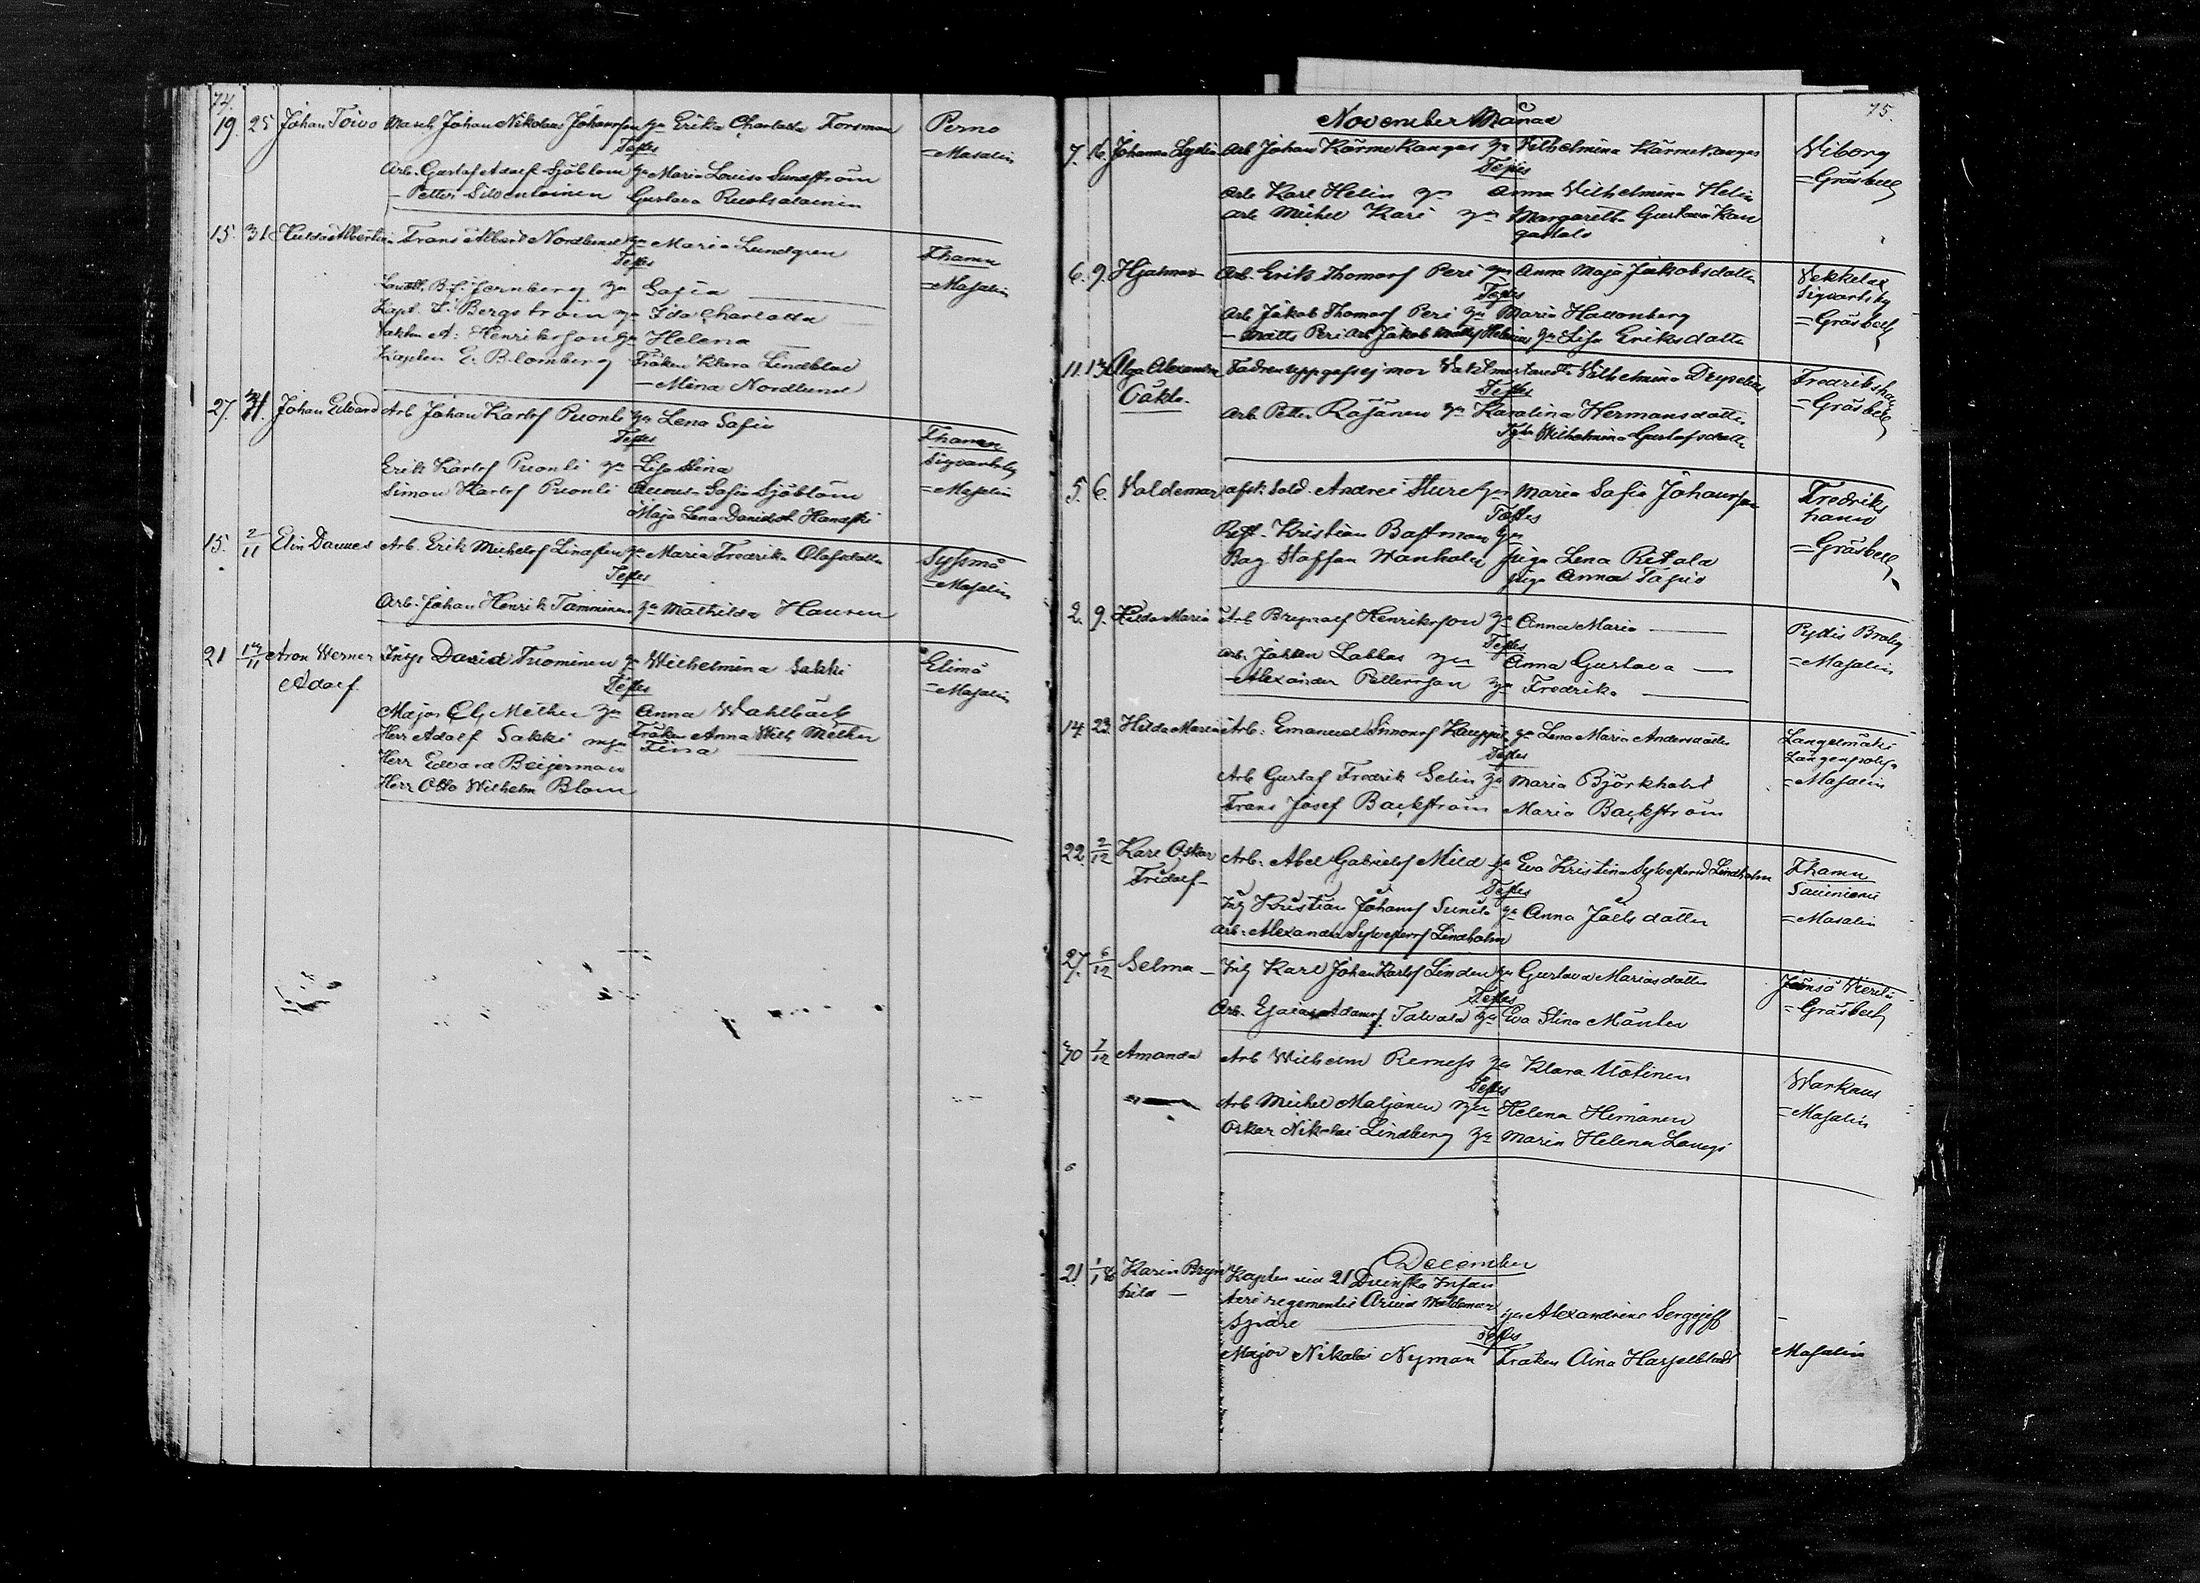 74.
19. 25 Johan Toivo Masch. Johan Nikolaus Johansson ja Erika Charlotta Forsman Perno
Testes = Masalin
Arb. Gustaf Adolf Sjöblom ja Maria Lovisa Sundström
- Petter Silventoinen Gustava Ruotsalainen
15. 31 Hulda Albertin Frans Albert Nordlund ja Maria Lundgren Fhamn
Testes = Masalin
B. F. Jernberg ja Sofia
Kapt. F. Bergström ja Ida Charlotta
A. Henriksson ja Helena
Kapten E. Blomberg Fröken Klara Lindblad
- Mina Nordlund
27. 31. Johan Edvard Arb Johan Karlsf Puonti ja Lena Sofia
Testes Fhamn
Erik Karlsf Puonti ja Lisa Stina Sigvartsby
Simon Karlsf Puonti Sofia Sjöblom = Masalin
Maja Lena
15. 2/11 Elin Arb. Erik Michelsf ja Maria Fredrika Olofsdotter Syssmä
Testes = Masalin
Arb. Johan Henrik Tamminen ja Mathilda Hansen
21 14/11 Aron Werner David Tuominen ja Wilhelmina Sakki Elimä
Adolf Testes = Masalin
Major Mether ja Anna Wahlbäck
Herr Adolf Sakki Fröken Anna Wilh Mether
Herr Edvard Beijerman Fina
Herr Otto Wilhelm Blom
75.
November Månad
7. 16. Johanna Lydia Arb Johan Kärmekangas ja Vilhelmina Kärmekangas Wiborg
Testes = Gråsbeck
Arb Karl Helin ja Anna Wilhelmina Helin
Arb Michel Kari ja Margaretha Gustava Kan
gastalo
6. 9. Hjalmar Arb. Erik Thomasf Peri ja Anna Maja Jakobsdotter Vekkelax
Testes Sigvartsby
Arb Jakob Thomasf Peri ja Maria Hallonberg = Gråsbeck
- Matts Peri Arb Jakob ja Lisa Eriksdotter
11. 13 Olga Alexandra Fadren uppgafs ej mor Wilhelmina Fredrikshamn
Oäkta. Testes = Gråsbeck
Arb Petter Räsänen ja Karolina Hermansdotter
Wilhelmina Gustafsdotter
5. 6. Valdemar afsk. Sold. Andrei Sture ja Maria Sofia Johansson Fredriks
Testes hamn
Kristian Bastman ja = Gråsbeck
Staffan Wanhala piga Lena Ritala
piga Anna Tapio
2. 9. Hilda Maria Arb Brynolf Henriksson ja Anna Maria Pyttis Broby
Testes = Masalin
Arb. Labbas ja Anna Gustava
- Alexander Pettersson ja Fredrika
14 23. Hilda Maria Arb. Emanuel Simonsf Kauppi ja Lena Maria Andersdotter Längelmäki
Testes
Arb Gustaf Fredrik Selin ja Maria Björkholm = Masalin
Frans Josef Backström Maria Backström
22. 2/12 Karl Oskar Arb. Abel Gabrielsf Mild ja Eva Kristina Sylvestersd Lindholm Fhamn
Fridolf - Testes Summa
Kristian Johansf Sunila ja Anna Joelsdotter = Masalin
Arb. Alexander Sylvestersf Lindholm
27. 6/12 Selma - Karl Johan Karlsf Linden ja Gustava Mariasdotter
Testes = Gråsbeck
Arb. Esaias Adamsf Talvala ja Eva Stina Mäntu
30 7/12 Amanda Arb Wilhelm ja Klara Uotinen Warkaus
Testes = Masalin
Arb Michel Maljanen ja Helena Himanen
Oskar Nikolai Lindberg ja Maria Helena
December
21. Karin Bryn Kapten vid 21 Infan
hild - teri regementet Arvid Waldemar
Spåre ja Alexandrine Sergejeff
Testes
Major Nikolai Nyman Fröken Aina Hasselbladt Masalin